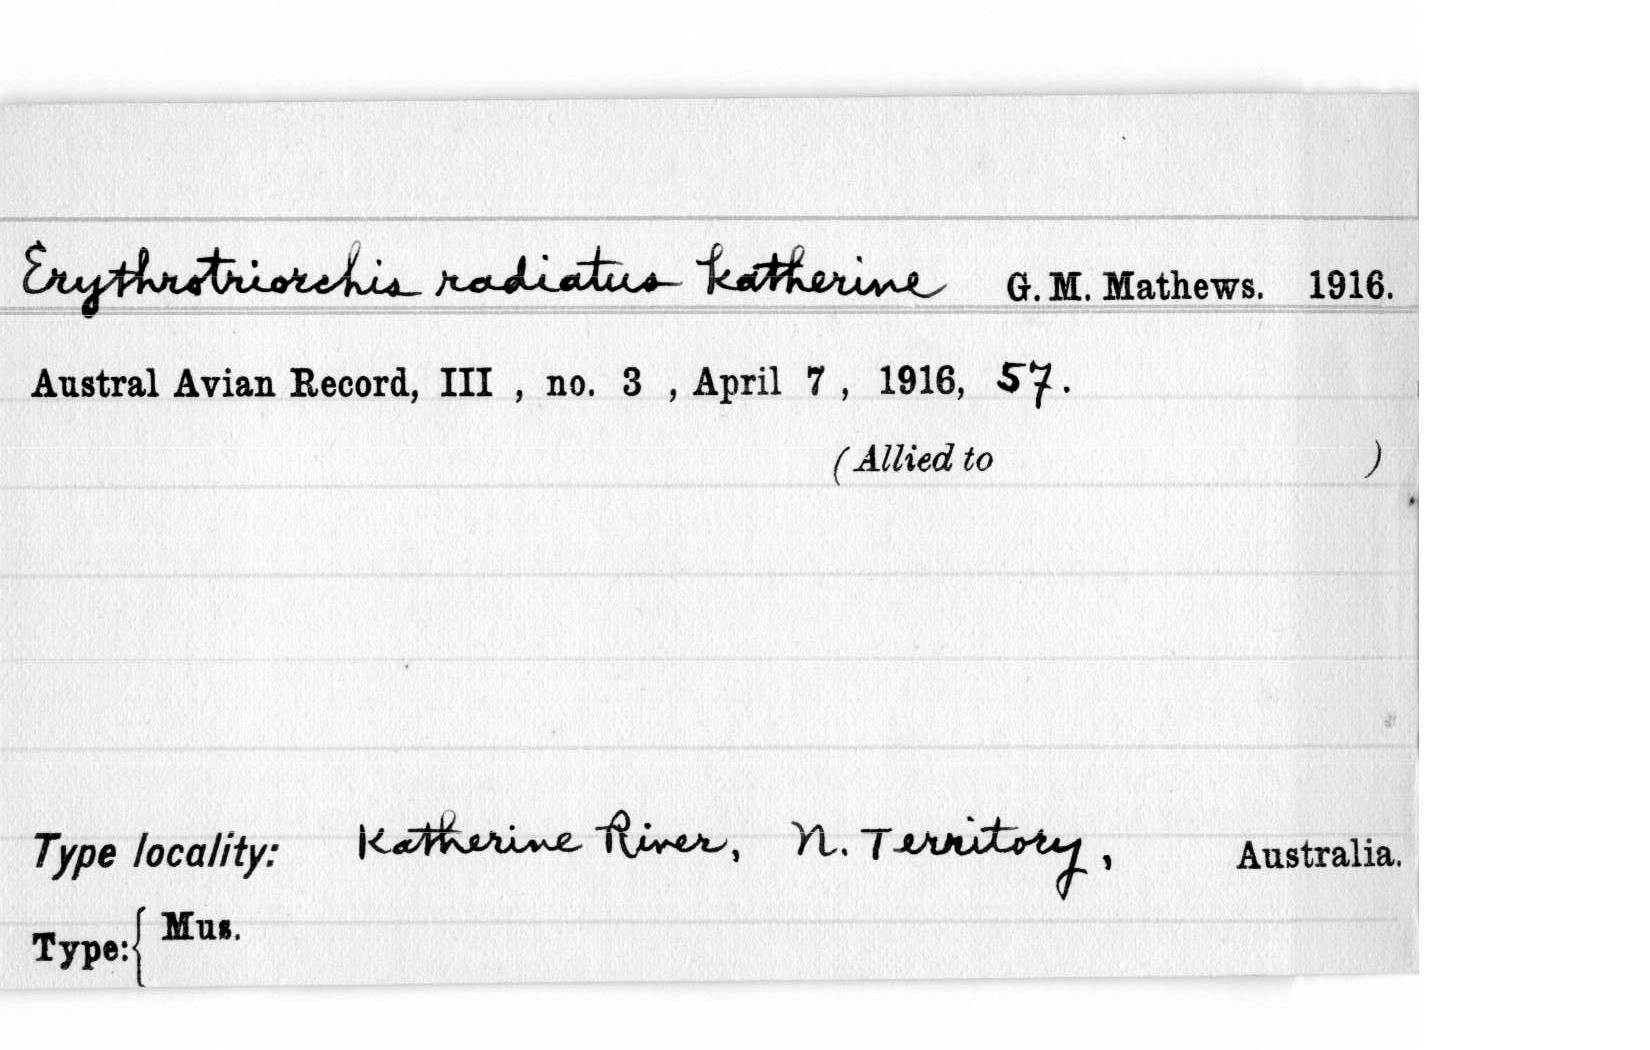 Erythrotriorchis radiatus katherine G. M. Mathews. 1916.
Austral Avian Record, III , no. 3 , April 7 , 1916, 57.
(Allied to )
Type locality: Katherine River, N. Territory, Australia.
Type:{ Mus.